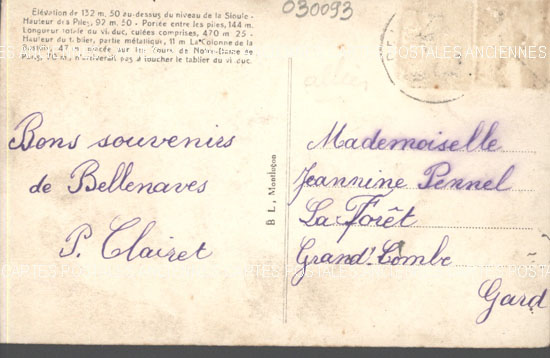 Élévation de 132 m. 50 au-dessus du niveau de la Sioule -
Hauteur des Piles, 92 m. 50 - Portée entre les piles, 144 m.
Longueur totale du viaduc, culées comprises, 470 m 25 -
Hauteur du tablier, partie métallique, 11 m La Colonne de la
Bastille, 47 m. placée sur les Tours de Notre-Dame de
Paris, n'arriverait pas à toucher le tablier du viaduc.
030093
Bons souvenirs
de Bellenaves
P. Clairet
B L, Montluçon
Mademoiselle
Jeannine Pennel
La Forêt
Grand'Combe
Gard